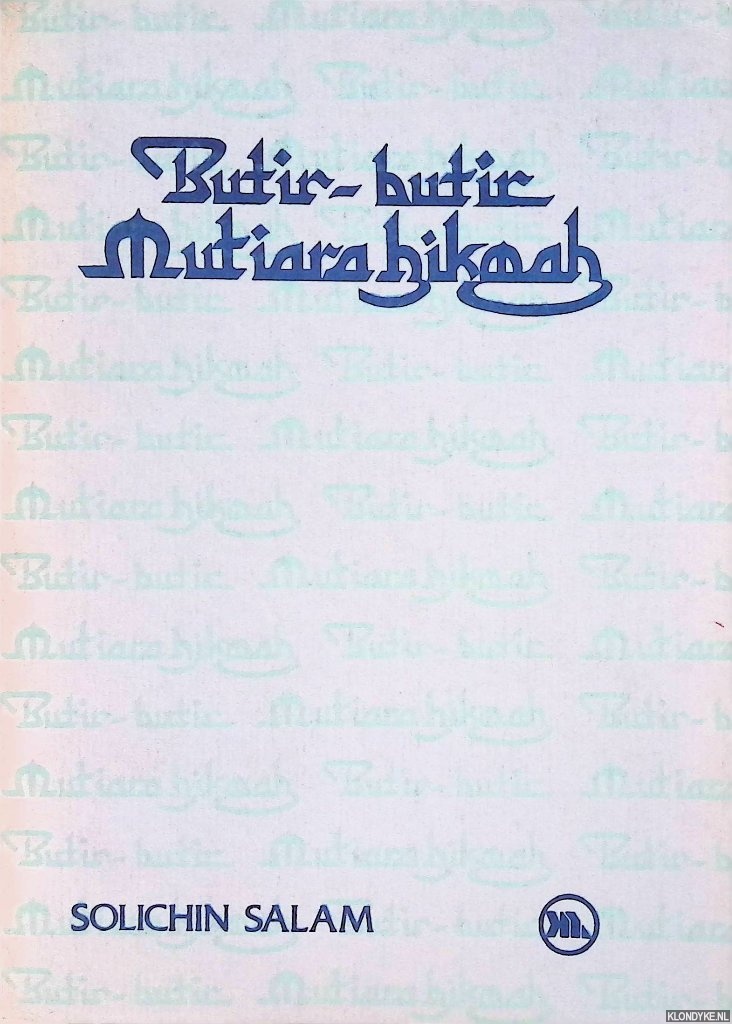 Butir-butir
Mutiara hikmah
SOLICHIN SALAM
KLONDYKE.NL